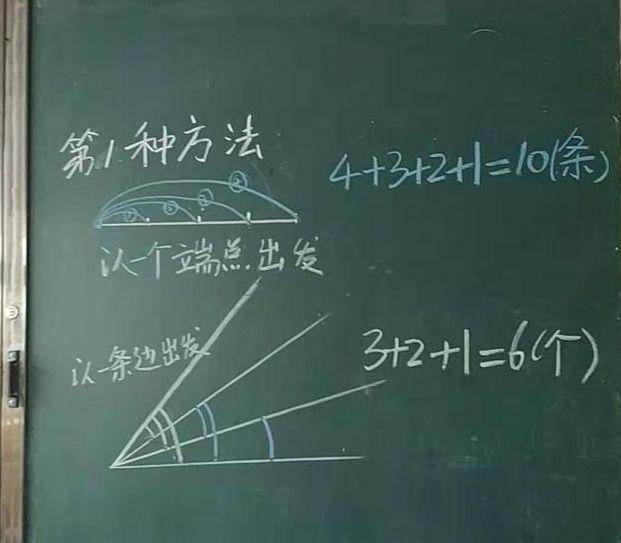 第1种方法
4+3+2+1=10(条)
① ② ③ ④
以一个端点出发
以一条边出发
3+2+1=6(个)